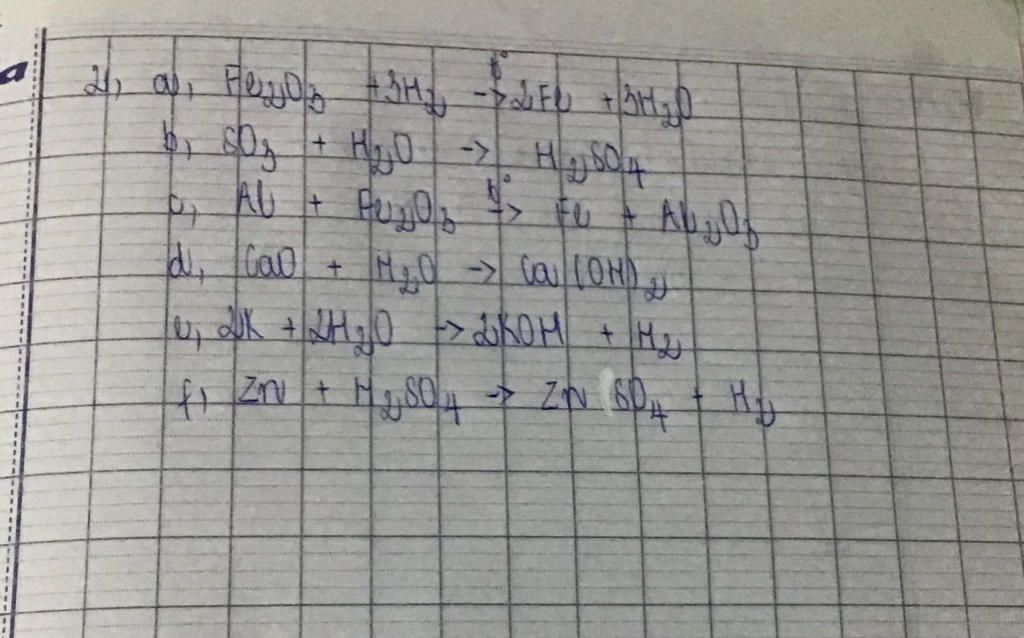 2, a, Fe₂O₃ + 3H₂ →t° 2Fe + 3H₂O
b, SO₃ + H₂O → H₂SO₄
c, Al + Fe₂O₃ →t° Fe + Al₂O₃
d, CaO + H₂O → Ca(OH)₂
e, 2K + 2H₂O → 2KOH + H₂
f, Zn + H₂SO₄ → ZnSO₄ + H₂